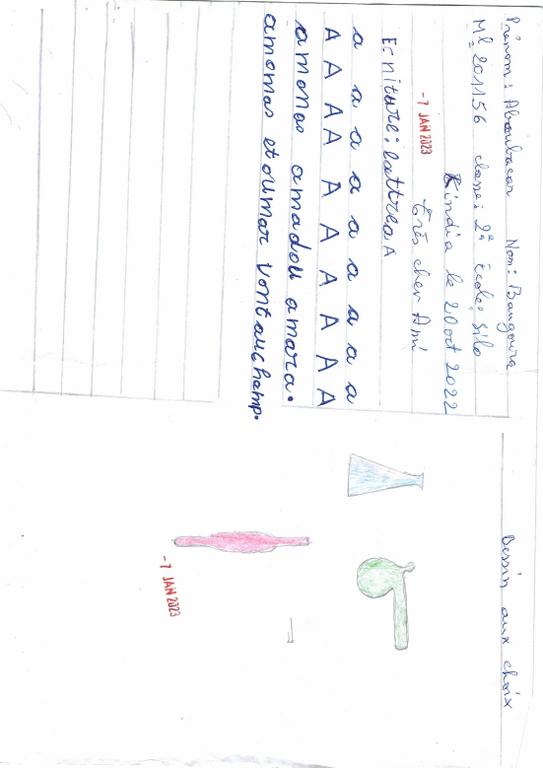 Prénom: Aboubacar Nom: Bangoura
Ml 201156 classe: 2e École: Silo
Kindia le 20 oct 2022
-7 JAN 2023
très cher Ami
Ecriture: lattrea A
a a a a a a a a a
A A A A A A A A A
amonas amadou amara.
amomas etoumar vont auchamp.
Dessin aux choix
-7 JAN 2023